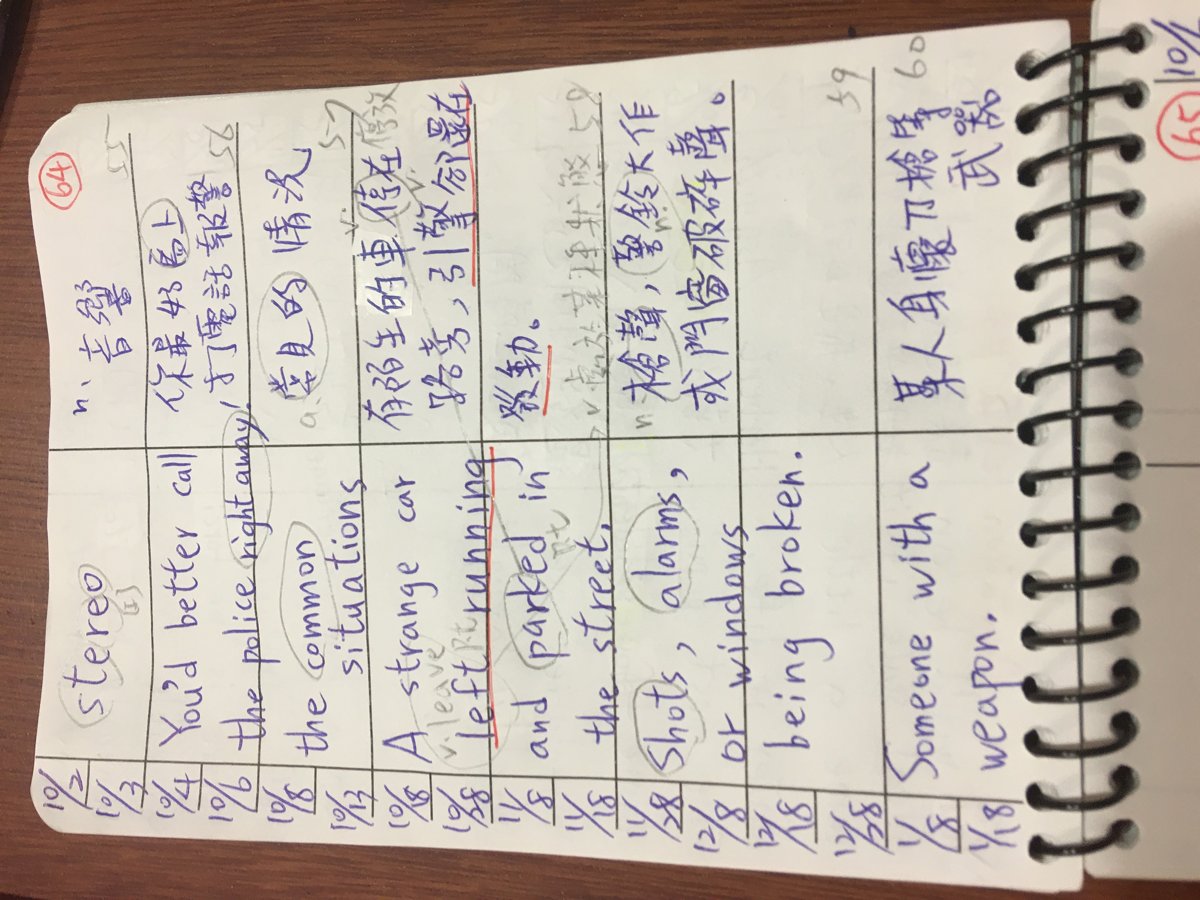 64
10/2
10/3
stereo
n. 音響
55
10/4
10/6
You'd better call
the police right away.
你最好馬上
打電話報警
56
10/8
10/13
the common
situations
a.
常見的 情況
57
10/18
10/28
A strange car
v. leave pt
left running
有陌生的車停在
v. 停放
路旁,引擎仍還在
11/8
11/18
and parked in
pt
the street.
發動。
58
11/28
12/8
Shots, alarms,
or windows
n 槍聲,警鈴大作
n
或門窗破碎聲。
12/18
12/28
being broken.
59
1/8
1/18
Someone with a
weapon.
某人身懷刀槍等
武器
60
65
10/